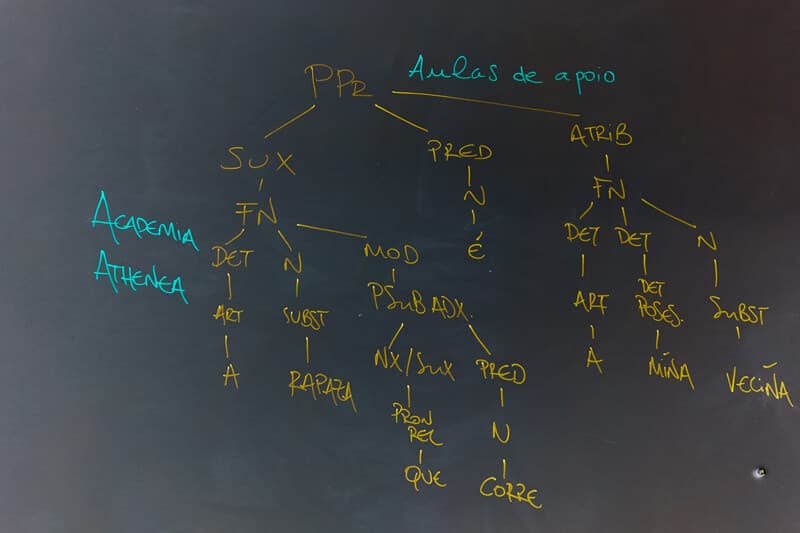 Aulas de apoio
PPR
SUX PRED ATRIB
FN N FN
ACADEMIA
ATHENEA
DET N MOD É DET DET N
ART SUBST PSUB ADX. ART DET POSES. SUBST
A RAPAZA NX/SUX PRED A MIÑA VECIÑA
PRON REL N
QUE CORRE